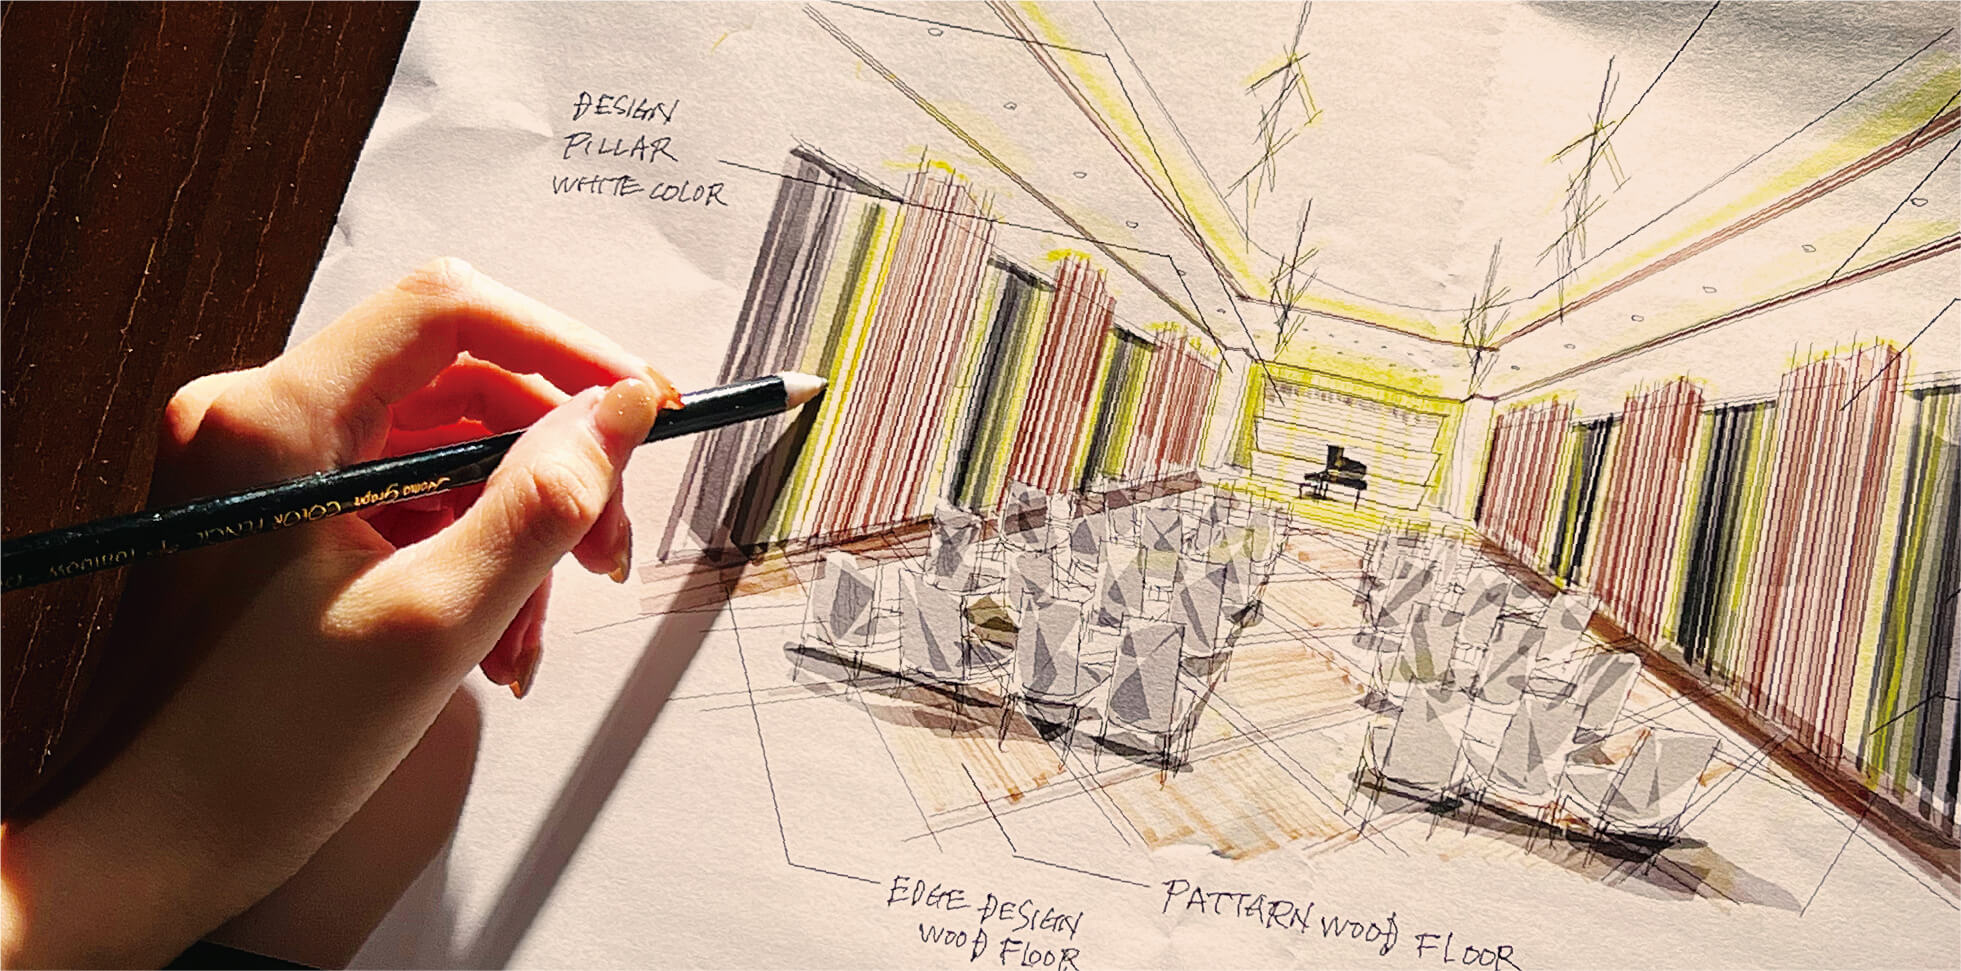 DESIGN
PILLAR
WHITE COLOR
Nano Graph COLOR PENCIL
EDGE DESIGN
WOOD FLOOR
PATTARN WOOD FLOOR